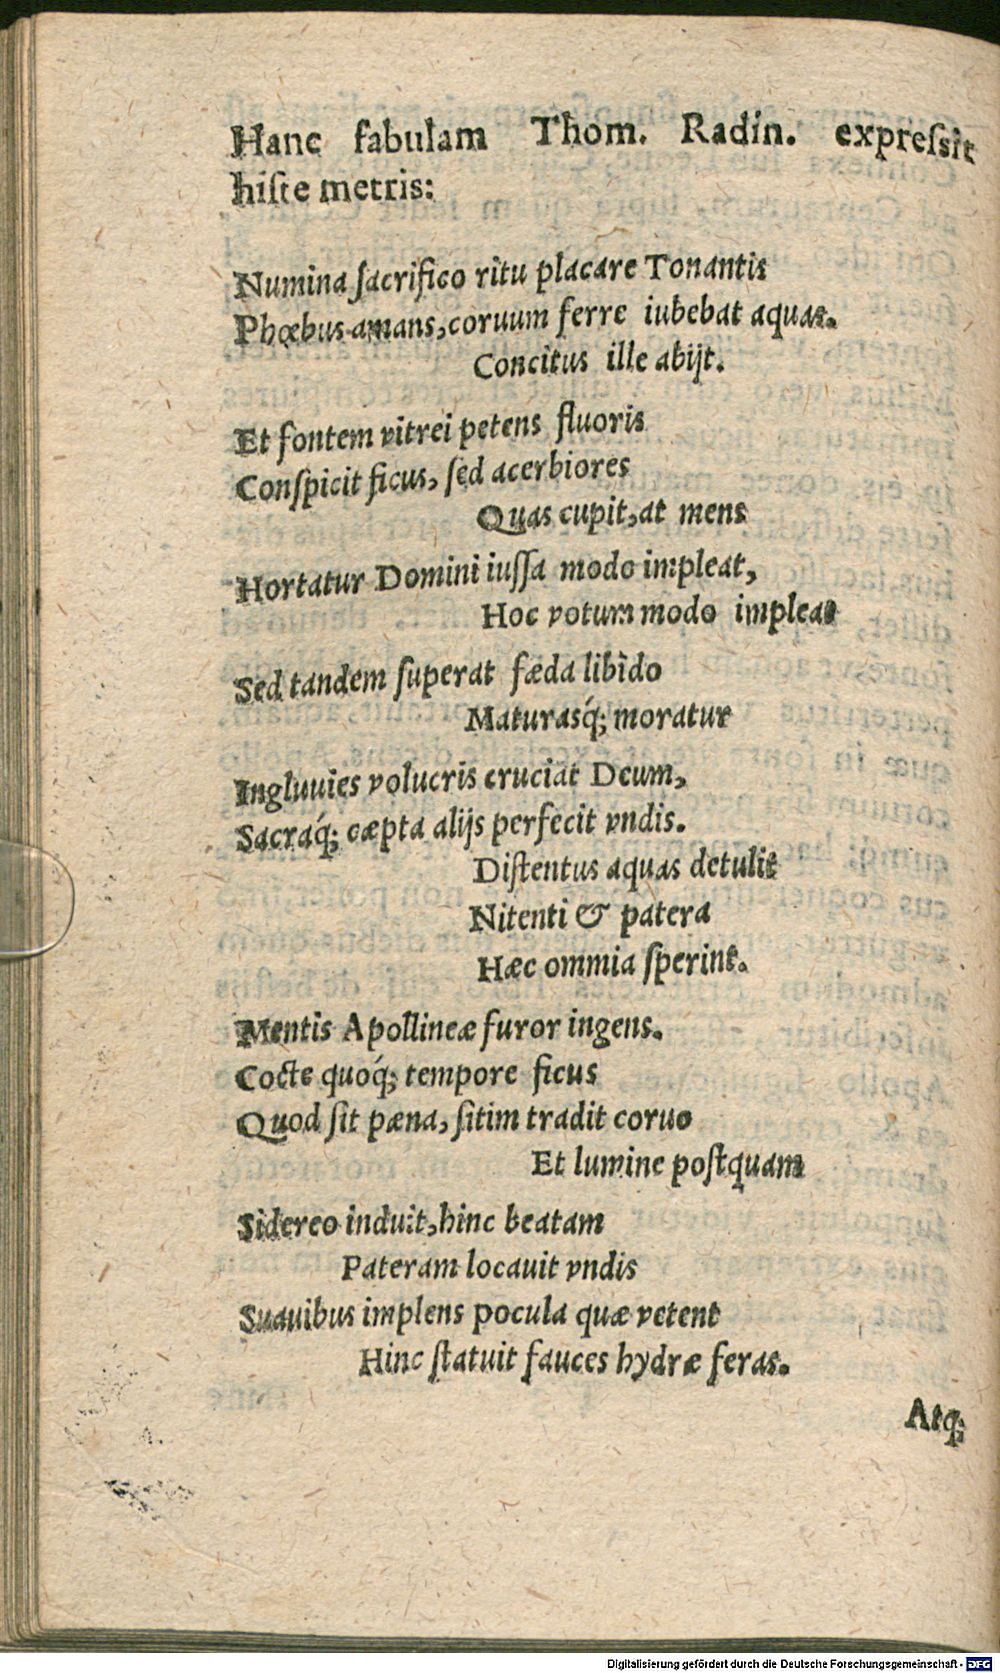 Hanc fabulam Thom. Radin. expreſsit
hiſce metris:
Numina ſacrifico ritu placare Tonantis
Phœbus amans, coruum ferre iubebat aquas.
Concitus ille abijt.
Et fontem vitrei petens fluoris
Conſpicit ficus, ſed acerbiores
Quas cupit, at mens
Hortatur Domini iuſſa modo impleat,
Hoc votum modo impleat
Sed tandem ſuperat fæda libido
Maturasq́; moratur
Ingluuies volucris cruciat Deum,
Sacraq́; cæpta alijs perfecit vndis.
Diſtentus aquas detulit
Nitenti & patera
Hæc ommia ſperint.
Mentis Apollineæ furor ingens.
Cocte quoq́; tempore ficus
Quod ſit pæna, ſitim tradit coruo
Et lumine poſtquam
Sidereo induit, hinc beatam
Pateram locauit vndis
Suauibus implens pocula quæ vetent
Hinc ſtatuit fauces hydræ feras.
Atq;
Digitalisierung gefördert durch die Deutsche Forschungsgemeinschaft - DFG